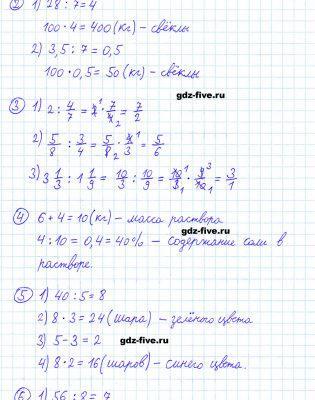 ② 1) 28 : 7 = 4
100 · 4 = 400 (кг) – свёклы
2) 3,5 : 7 = 0,5
100 · 0,5 = 50 (кг) – свёклы
gdz-five.ru
③ 1) 2 : 4/7 = 2¹ · 7/4₂ = 7/2
2) 5/8 : 3/4 = 5/8₂ · 4¹/3 = 5/6
3) 3 1/3 : 1 1/9 = 10/3 : 10/9 = 10¹/3₁ · 9³/10₁ = 3/1
gdz-five.ru
④ 6 + 4 = 10 (кг) – масса раствора
4 : 10 = 0,4 = 40% – содержание соли в
растворе.
gdz-five.ru
⑤ 1) 40 : 5 = 8
2) 8 · 3 = 24 (шара) – зелёного цвета
3) 5 – 3 = 2
gdz-five.ru
4) 8 · 2 = 16 (шаров) – синего цвета.
⑥ 1) 56 : 8 = 7